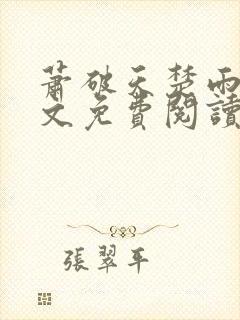 蕭破天楚雨
文免費閱讀
張翠平